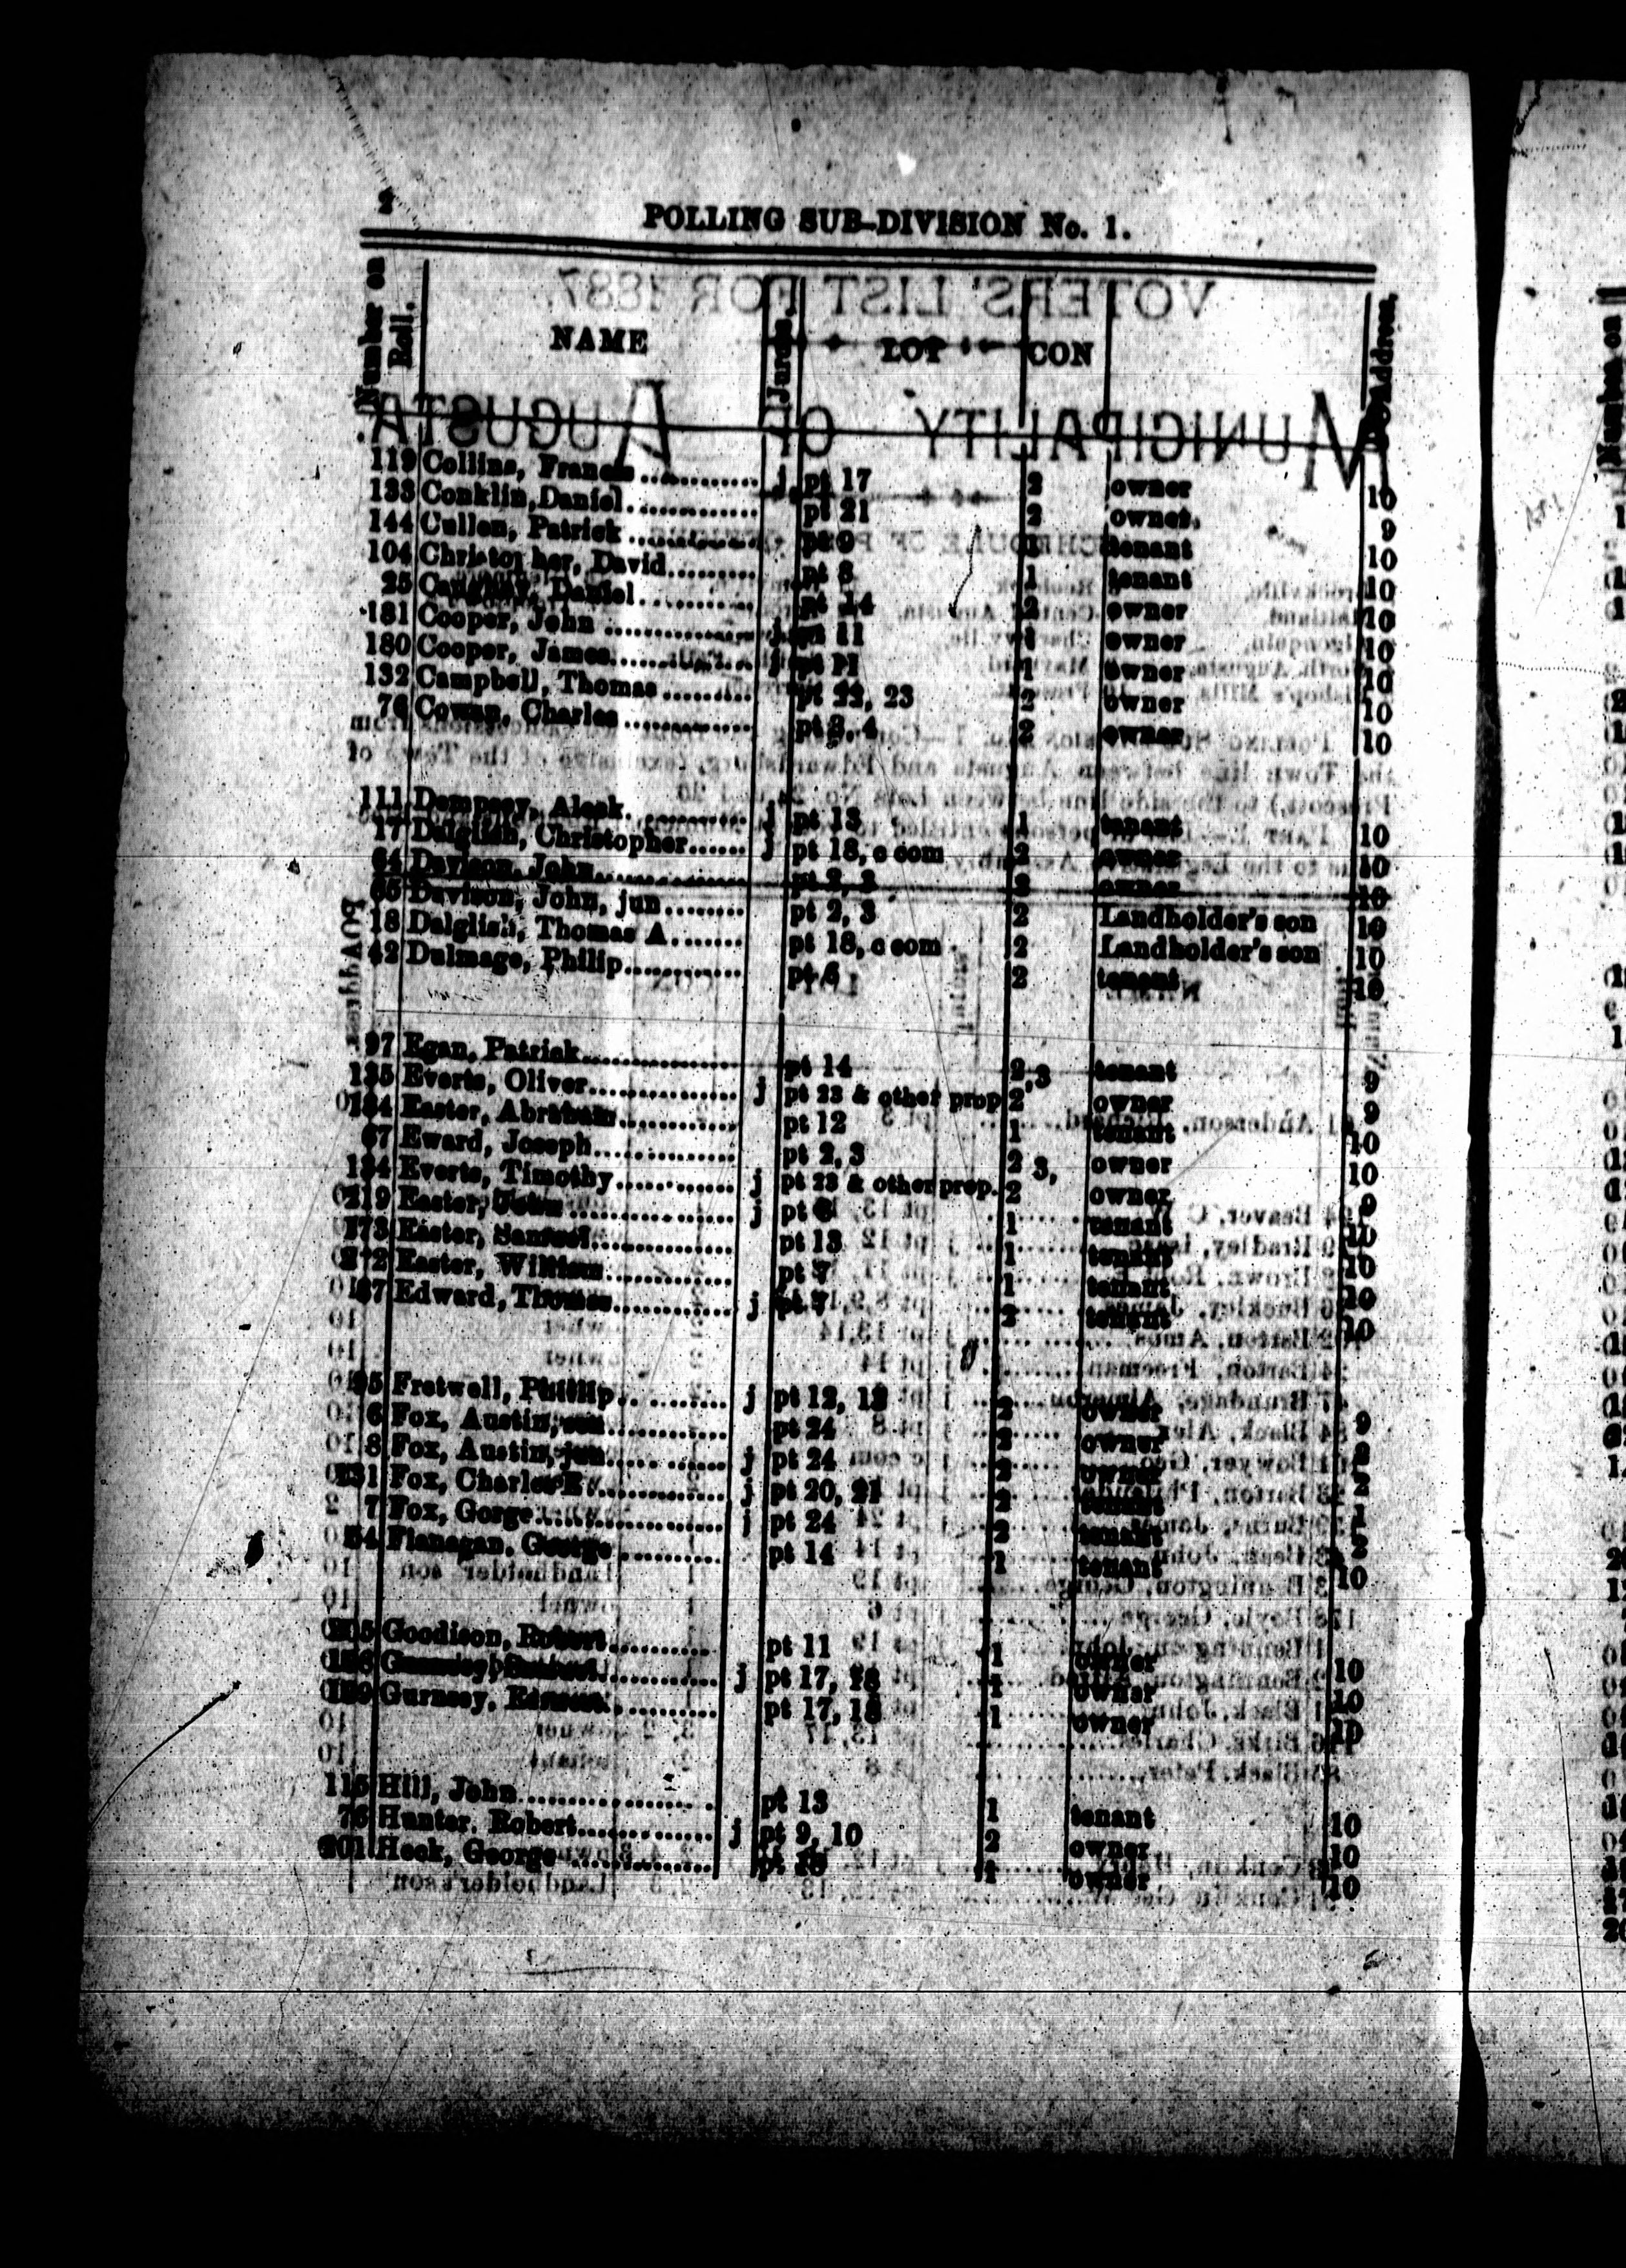 2
POLLING SUB-DIVISION No. 1.
Number on Roll. NAME Jurors. LOT CON PO Address.
119 Collins, Francis j pt 17 2 owner 10
133 Conklin, Daniel pt 21 2 owner 9
144 Cullen, Patrick pt 9 1 tenant 10
104 Christopher, David pt 8 1 tenant 10
25 Caughey, Daniel pt 14 2 owner 10
181 Cooper, John j pt 11 1 owner 10
180 Cooper, James j pt 11 1 owner 10
132 Campbell, Thomas pt 22, 23 2 owner 10
76 Cowan, Charles pt 3, 4 2 owner 10
111 Dempsey, Aleck. j pt 13 1 tenant 10
17 Dalglish, Christopher j pt 18, c com 2 owner 10
64 Davison, John pt 2, 3 2 owner 10
65 Davison, John, jun pt 2, 3 2 Landholder's son 10
18 Dalglish, Thomas A pt 18, c com 2 Landholder's son 10
42 Dulmage, Philip pt 6 2 tenant 10
97 Egan, Patrick pt 14 2 tenant 9
135 Everts, Oliver j pt 23 & other prop 2,3 owner 9
184 Easter, Abraham pt 12 1 tenant 10
67 Eward, Joseph pt 2, 3 2 owner 10
134 Everts, Timothy j pt 23 & other prop. 2 3, owner 9
219 Easter, John j pt 6 1 tenant 10
173 Easter, Samuel pt 13 1 tenant 10
Easter, William pt 7 1 tenant 10
Edward, Thomas j pt 7 2 tenant 10
Fretwell, Phillip j pt 12, 13 2 owner 9
6 Fox, Austin, sen pt 24 2 owner 2
8 Fox, Austin, jun j pt 24 2 owner 2
131 Fox, Charles E j pt 20, 21 2 tenant 1
7 Fox, Gorge j pt 24 2 tenant 2
54 Flanagan, George pt 14 1 tenant 10
Goodison, Robert pt 11 1 owner 10
j pt 17, 18 1 owner 10
Gurnsey, Earnest pt 17, 18 1 owner 10
115 Hill, John pt 13 1 tenant 10
76 Hunter. Robert j pt 9, 10 2 owner 10
201 Heck, George 1 owner 10